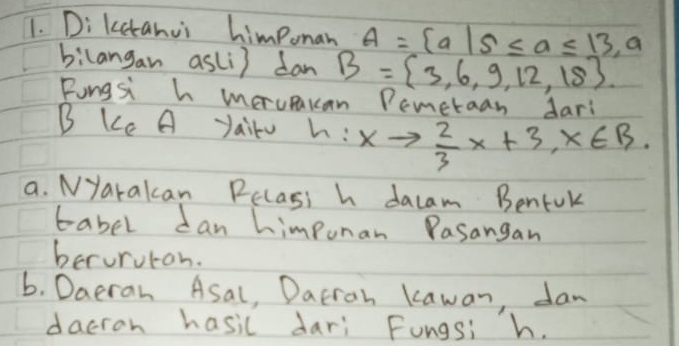 1. Diketahui himpunan A = {a | 5 ≤ a ≤ 13, a
bilangan asli} dan B = {3, 6, 9, 12, 15}.
Fungsi h merupakan Pemetaan dari
B ke A yaitu h : x → 2/3 x + 3, x ∈ B.
a. Nyatakan Relasi h dalam Bentuk
tabel dan himpunan Pasangan
berurutan.
b. Daerah Asal, Daerah kawan, dan
daerah hasil dari Fungsi h.